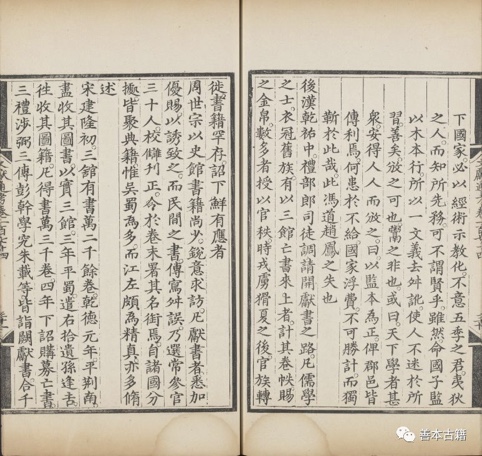 下國家必以經術示教化不意五季之君夷狄
之人而知所先務可不謂賢乎雖然命國子監
以木本行所以一文義去舛訛使人不迷於所
習善矣攽之可也鬻之非也或曰天下學者甚
衆安得人人而攽之曰以監本為正俾郡邑皆
傳利焉何患於不給國家浮費不可勝計而獨
靳於此哉此馮道趙鳳之失也
後漢乾祐中禮部郎司徒調請開獻書之路凡儒學
之士衣冠舊族有以三館亡書來上者計其卷帙賜
之金帛數多者授以官秩時戎虜猾夏之後官族轉
徙書籍罕存詔下鮮有應者
周世宗以史館書籍尚少銳意求訪凡獻書者悉加
優賜以誘致之而民間之書傳寫舛誤乃選常參官
三十人校讎刊正令於卷末署其名銜焉自諸國分
據皆聚典籍惟吳蜀為多而江左頗為精真亦多脩
述
宋建隆初三館有書萬二千餘卷乾德元年平荆南
盡收其圖書以實三館三年平蜀遣右拾遺孫逢吉
往收其圖籍凡得書萬三千卷四年下詔購募亡書
三禮涉弼三傳彭幹學究朱載等皆詣闕獻書合千
善本古籍